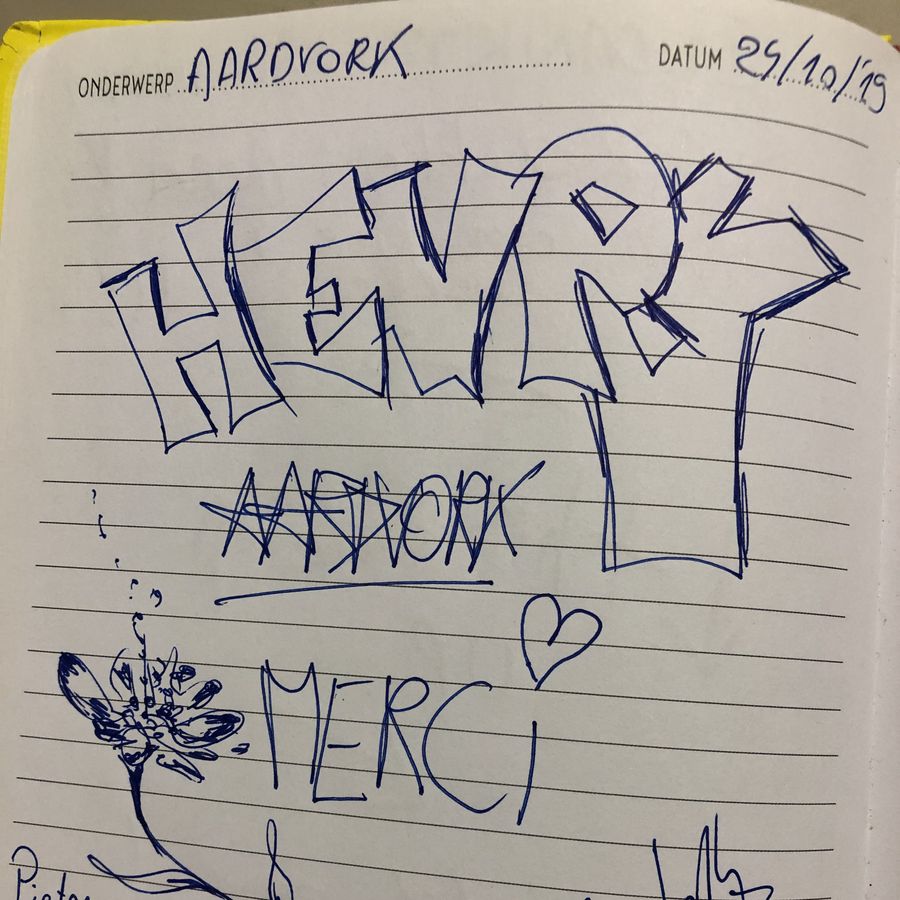 ONDERWERP AARDVORK DATUM 25/10/'19
HENRY
AARDVORK
MERCI
Pieter